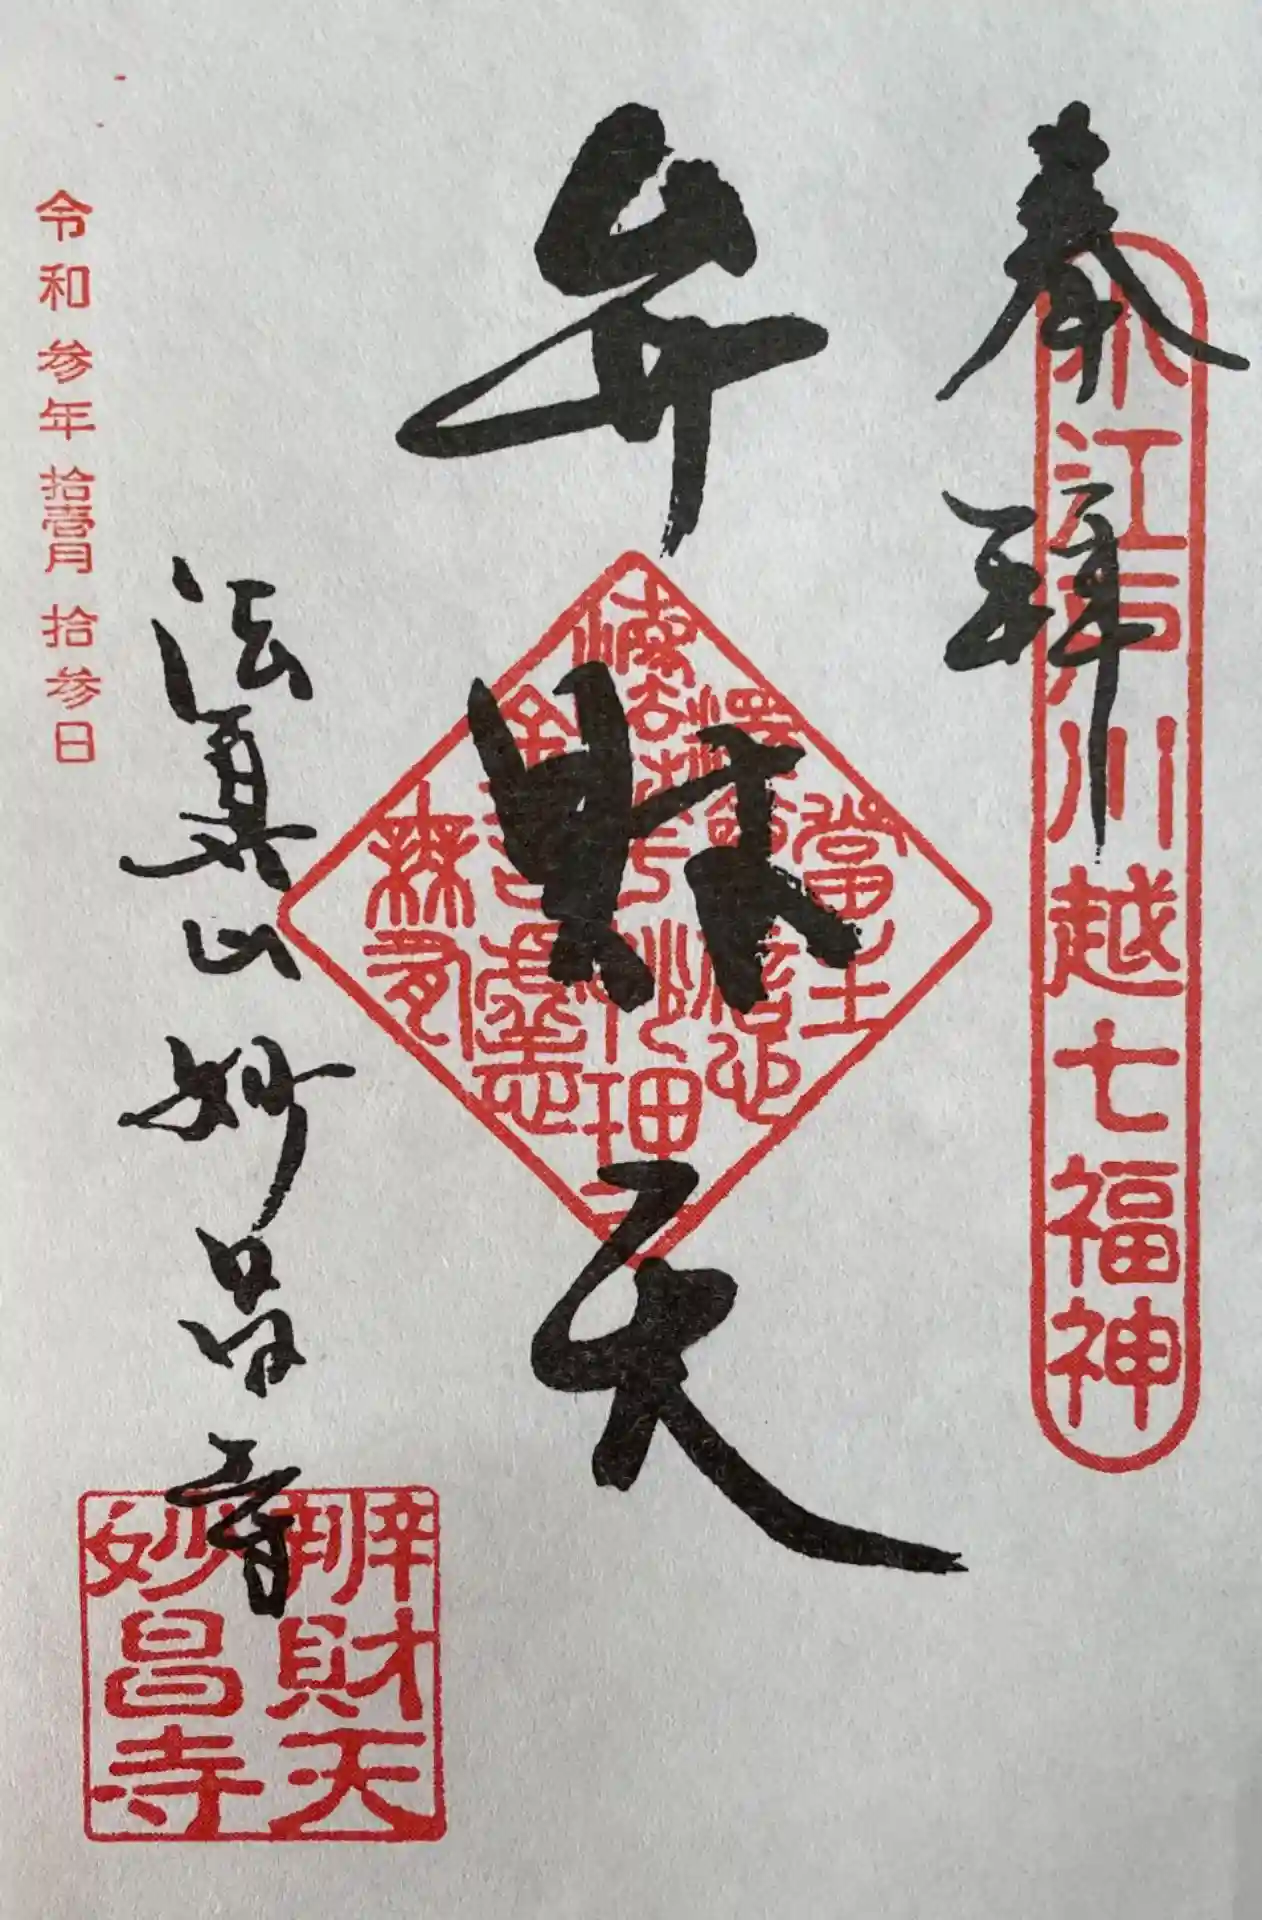 奉拝
小江戸川越七福神
弁財天
法眞山 妙昌寺
辨財天
妙昌寺
令和参年拾壹月拾参日